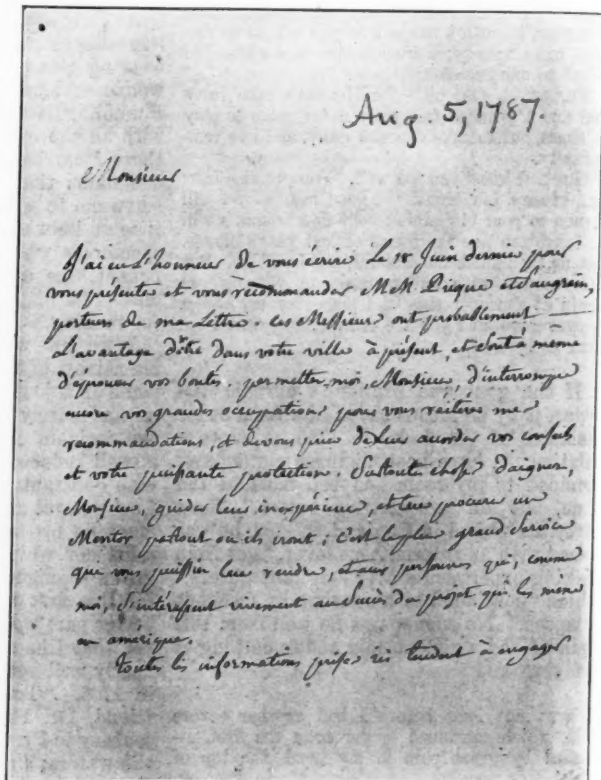 Aug. 5, 1787.
Monsieur
J'ai eu L'honneur de vous écrire Le 18 Juin dernier pour
vous présenter et vous recommander MM. Pique et Saugrain,
porteurs de ma Lettre. ces Messieurs ont probablement
L'avantage d'être dans votre ville à présent, et sont à même
d'éprouver vos bontés. permettez moi, Monsieur, d'interrompre
encore vos grandes occupations pour vous réitérer mes
recommandations, et de vous prier de Leur acorder vos conseils
et votre puissante protection. Surtout chose daigner,
Monsieur, guider leur inexpérience, et leur procurer un
Mentor partout ou ils iront; c'est le plus grand Service
que vous puissiez leur rendre, et aux personnes qui, comme
moi, s'intéressent vivement au Succès du projet qui les mène
en amérique.
Toutes les informations prises ici tendent à engager